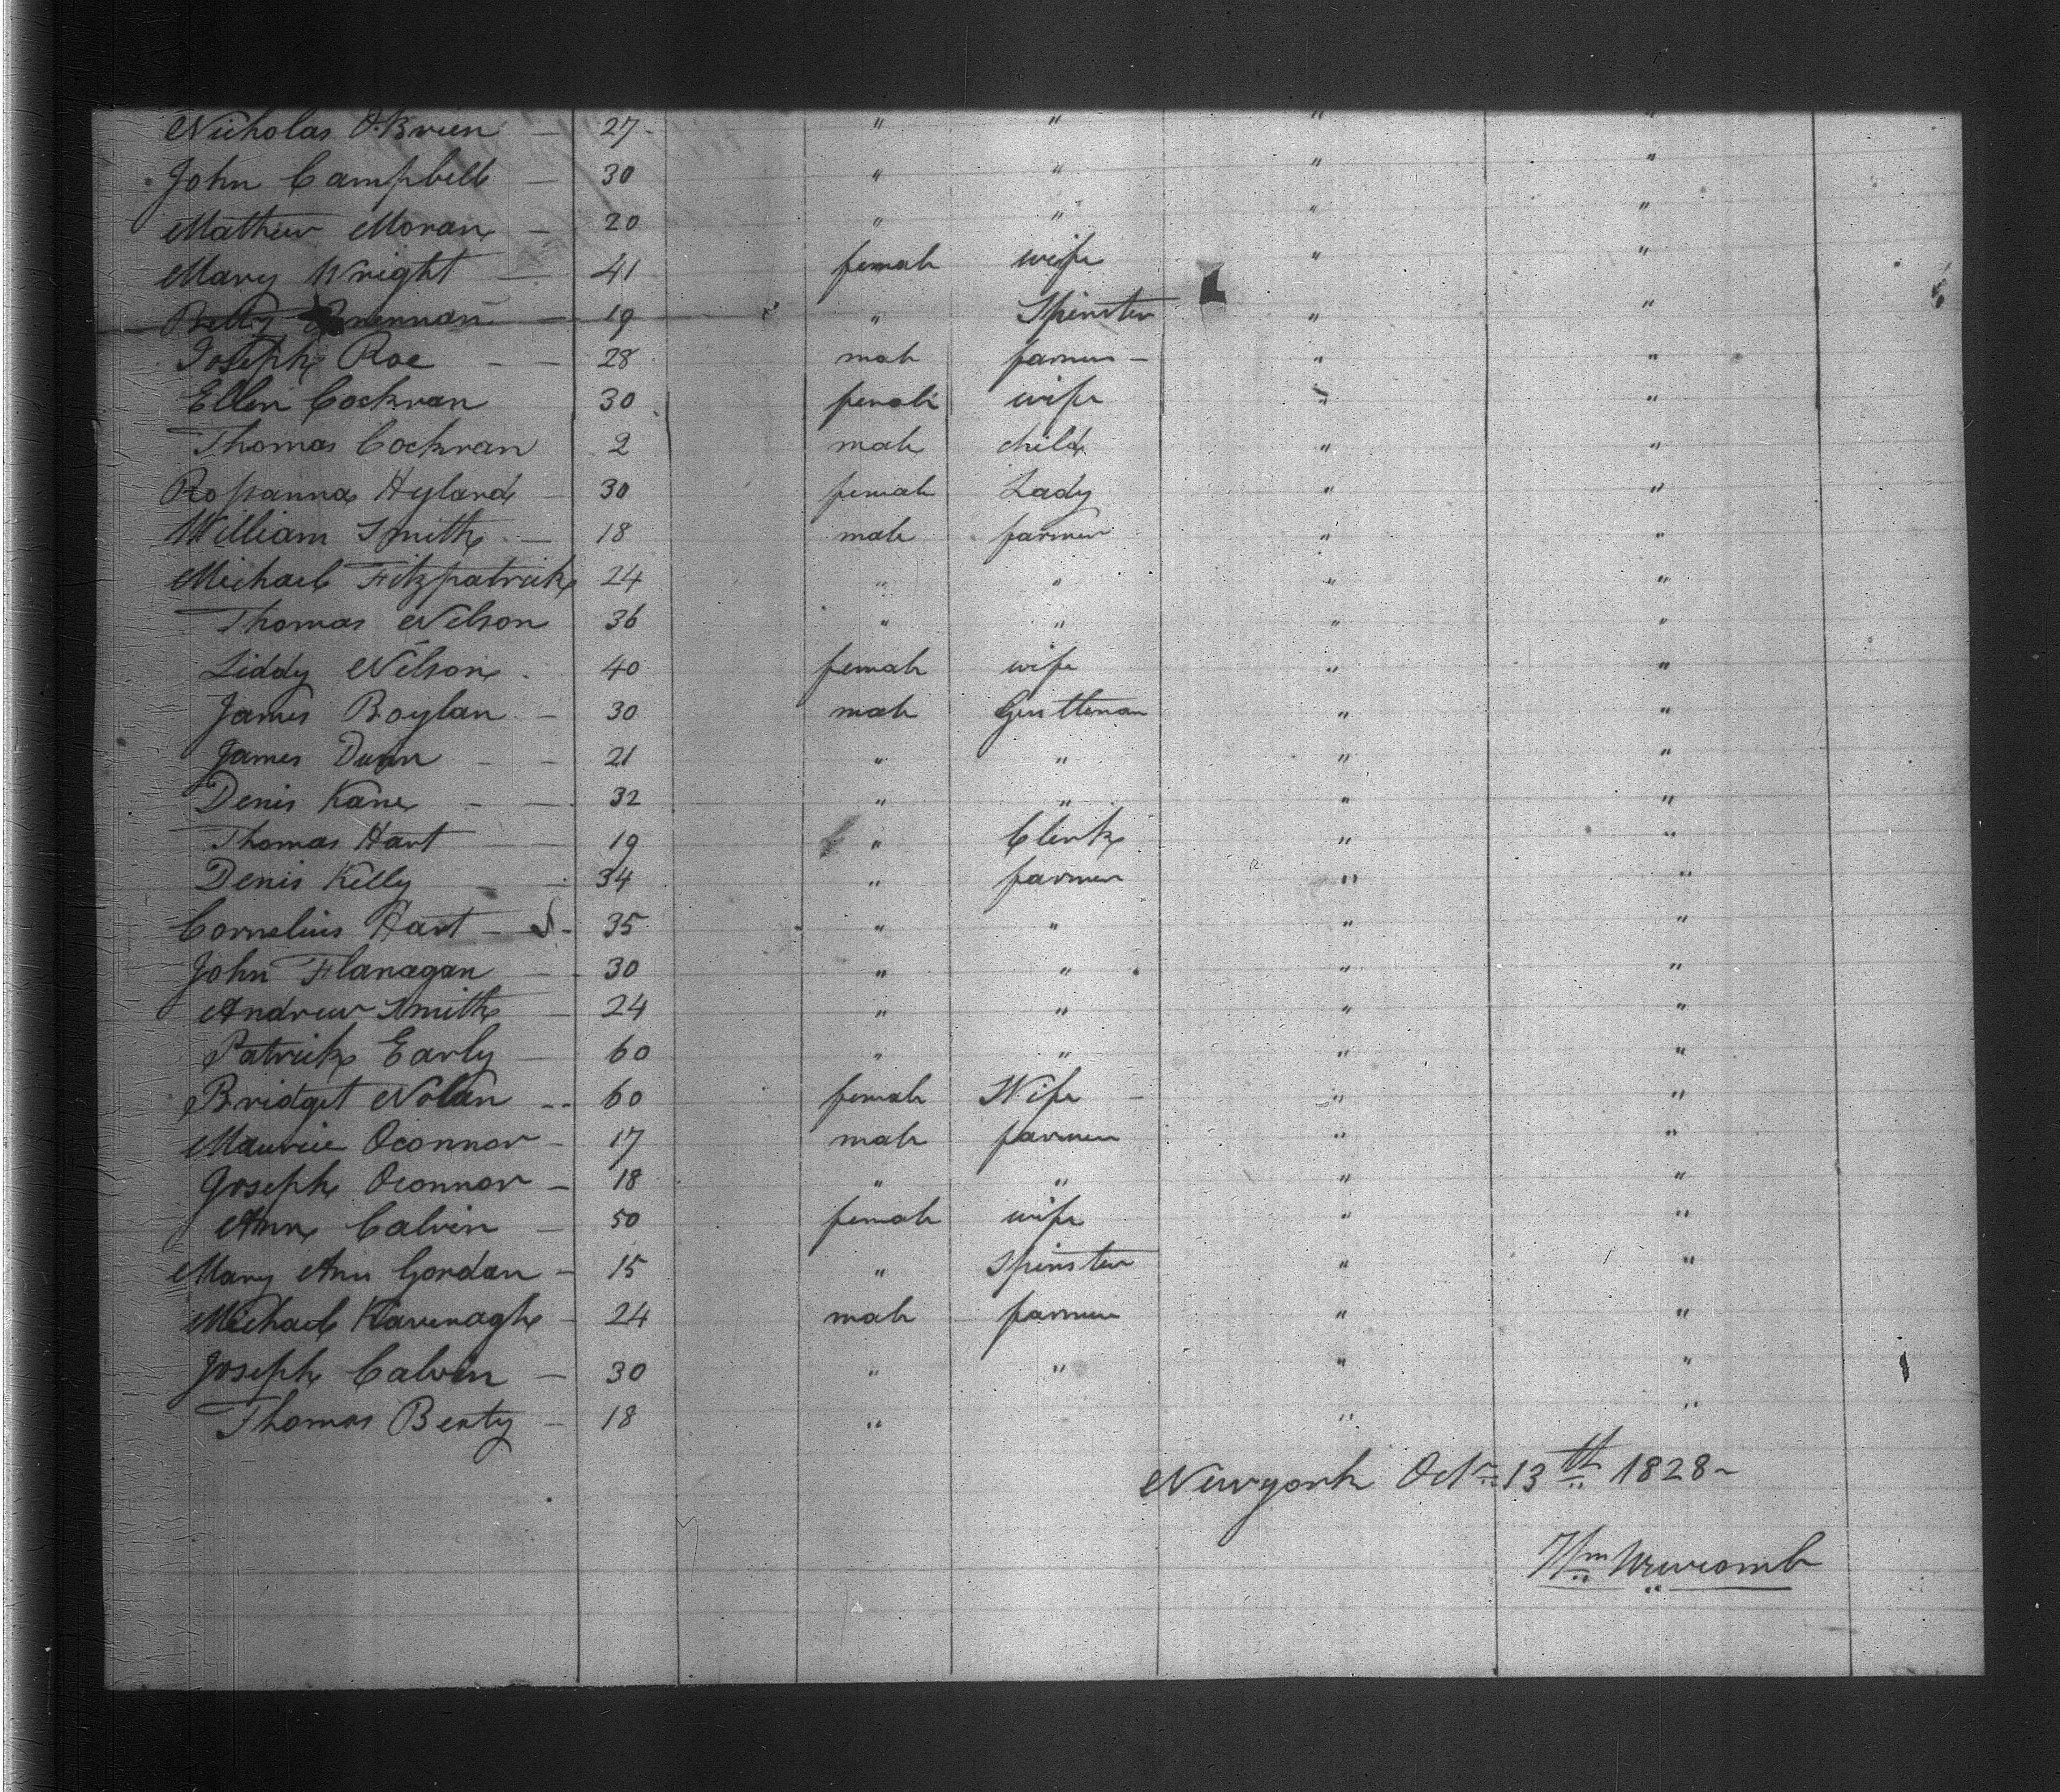 Nicholas O.Brien — 27 - " " " "
John Campbell — 30 " " " "
Mathew Moran — 20 " " " "
Mary Wright — 41 female wife " "
Betty Brennan — 19 " Spinster " "
Joseph Roe — — 28 male farmer — " "
Ellen Cockran 30 female wife " "
Thomas Cockran 2 male child " "
Rossanna Hyland — 30 female Lady " "
William Smith — 18 male farmer " "
Michael Fitzpatrick 24 " " " "
Thomas Nelson 36 " " " "
Liddy Nelson 40 female wife " "
James Boylan — 30 male Gentleman " "
James Dunn — — 21 " " " "
Denis Kane — — 32 " " " "
Thomas Hart — 19 " Clerk " "
Denis Kelly — — 34 " farmer " "
Cornelius Hart — 35 " " " "
John Flanagan — 30 " " " "
Andrew Smith — 24 " " " "
Patrick Early — 60 " " " "
Bridget Nolan — 60 female Wife — " "
Maurice Oconnor — 17 male farmer " "
Joseph Oconnor — 18 " " " "
Ann Calvin — 50 female wife " "
Mary Ann Gordan — 15 " Spinster " "
Michael Kavenagh — 24 male farmer " "
Joseph Calvin — 30 " " " "
Thomas Benty — 18 " " "
Newyork Octr 13th 1828 —
Wm Newcomb